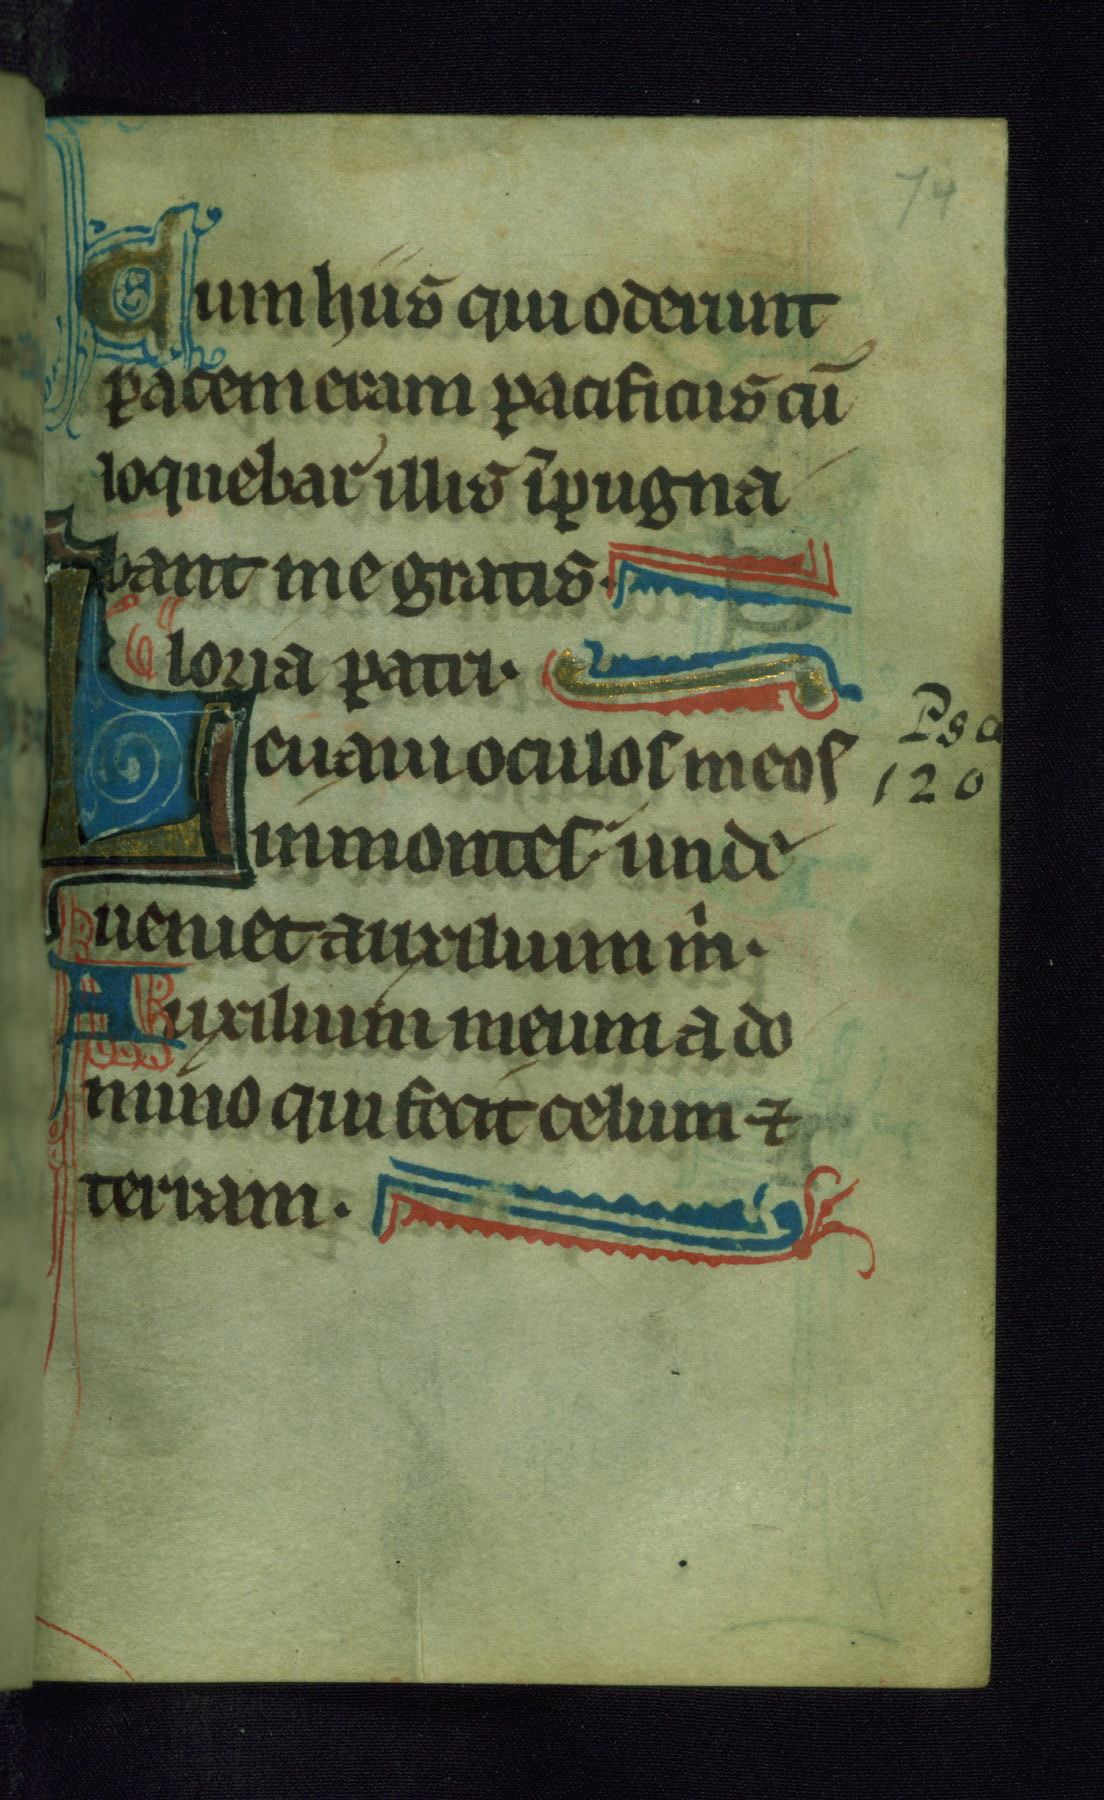 74
Cum hiis qui oderunt
pacem eram pacificus cū
loquebar illis īpugna
bant me gratis.
Gloria patri.
Leuaui oculos meos
in montes unde
ueniet auxilium m̍.
Auxilium meum a do
mino qui fecit celum ⁊
terram.
Psa
120